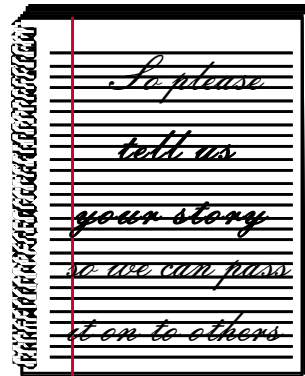 So please
tell us
your story
so we can pass
it on to others